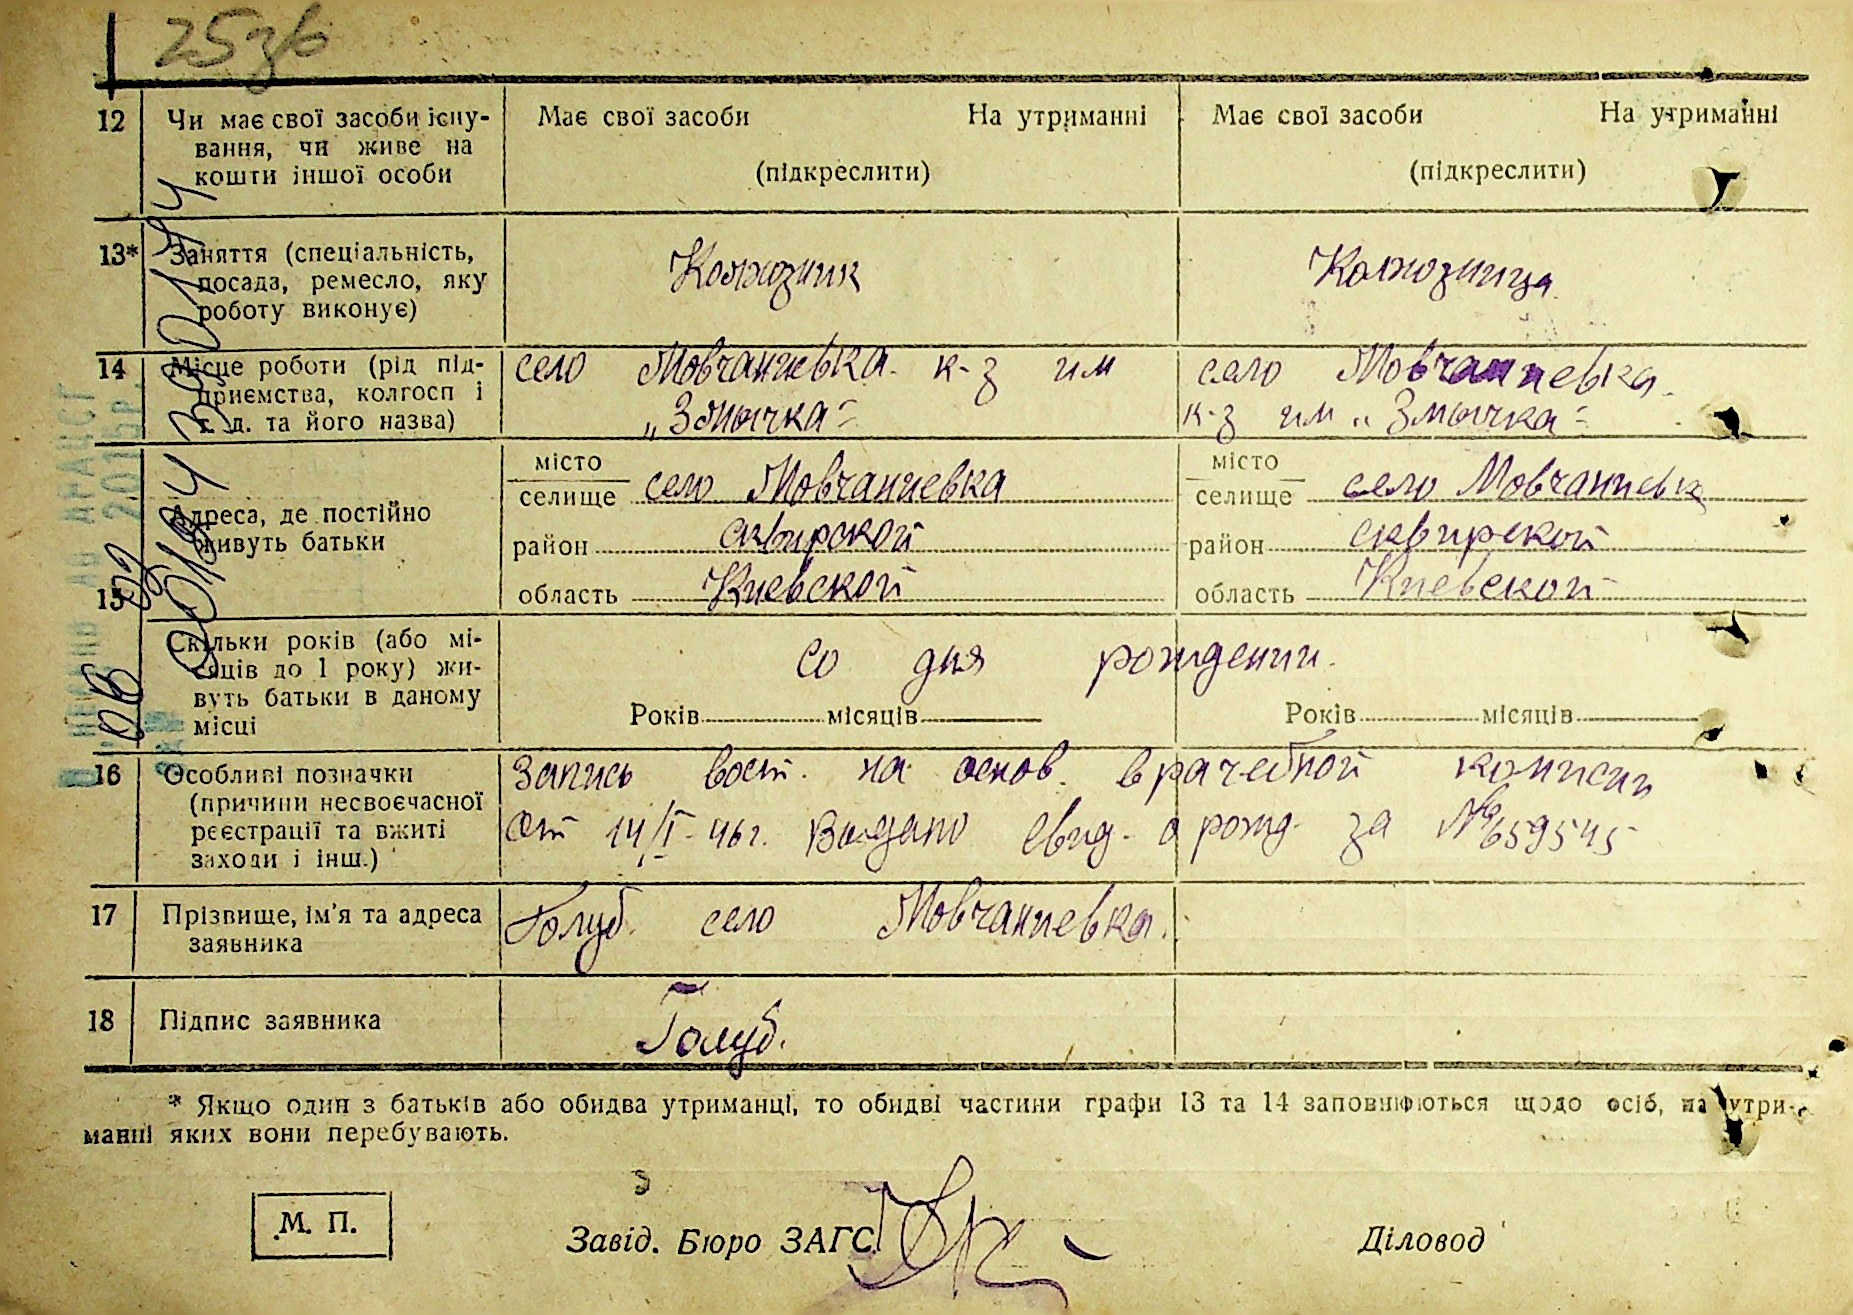 25зв
12 Чи має свої засоби існу- Має свої засоби На утриманні Має свої засоби На утриманні
вання, чи живе на
кошти іншої особи (підкреслити) (підкреслити)
13* Заняття (спеціальність, Колхозник Колхозница
посада, ремесло, яку
роботу виконує)
14 Місце роботи (рід під- село Мовчаниевка к-з им село Мовчаниевка
приємства, колгосп і „Змычка" к-з им „Змычка"
т. д. та його назва)
15 Адреса, де постійно живуть батьки
місто місто
селище село Мовчаниевка селище село Мовчаниевка
район сквирской район сквирской
область Киевской область Киевской
Скільки років (або мі- со дня рождении.
сяців до 1 року) жи-
вуть батьки в даному
місці Років місяців Років місяців
16 Особливі позначки Запись восст. на основ. врачебной комисии
(причини несвоєчасної
реєстрації та вжиті от 14/I-46г. Выдано свид. о рожд. за № 659545
заходи і інш.)
17 Прізвище, ім'я та адреса Голуб. село Мовчаниевка.
заявника
18 Підпис заявника Голуб.
* Якщо один з батьків або обидва утриманці, то обидві частини графи 13 та 14 заповнюються щодо осіб, на утри-
манні яких вони перебувають.
М. П. Завід. Бюро ЗАГС Діловод